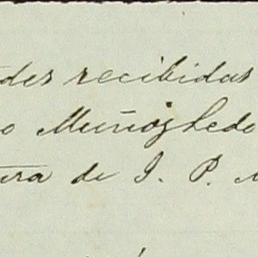 des recibidas
o Muñoz Ledo
ura de I. P.